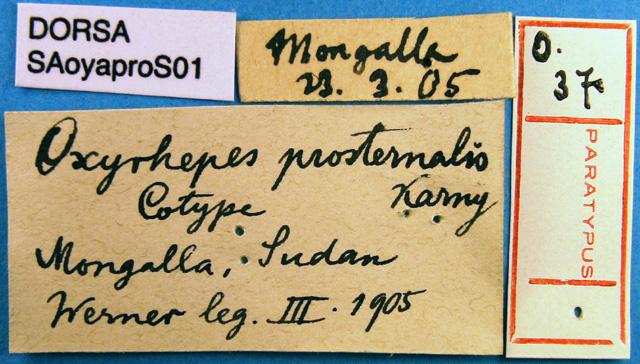 DORSA
SAoyaproS01
Mongalla
23. 3. 05
Oxyrhepes prosternalis
Cotype Karny
Mongalla, Sudan
Werner leg. III. 1905
O.
37
PARATYPUS